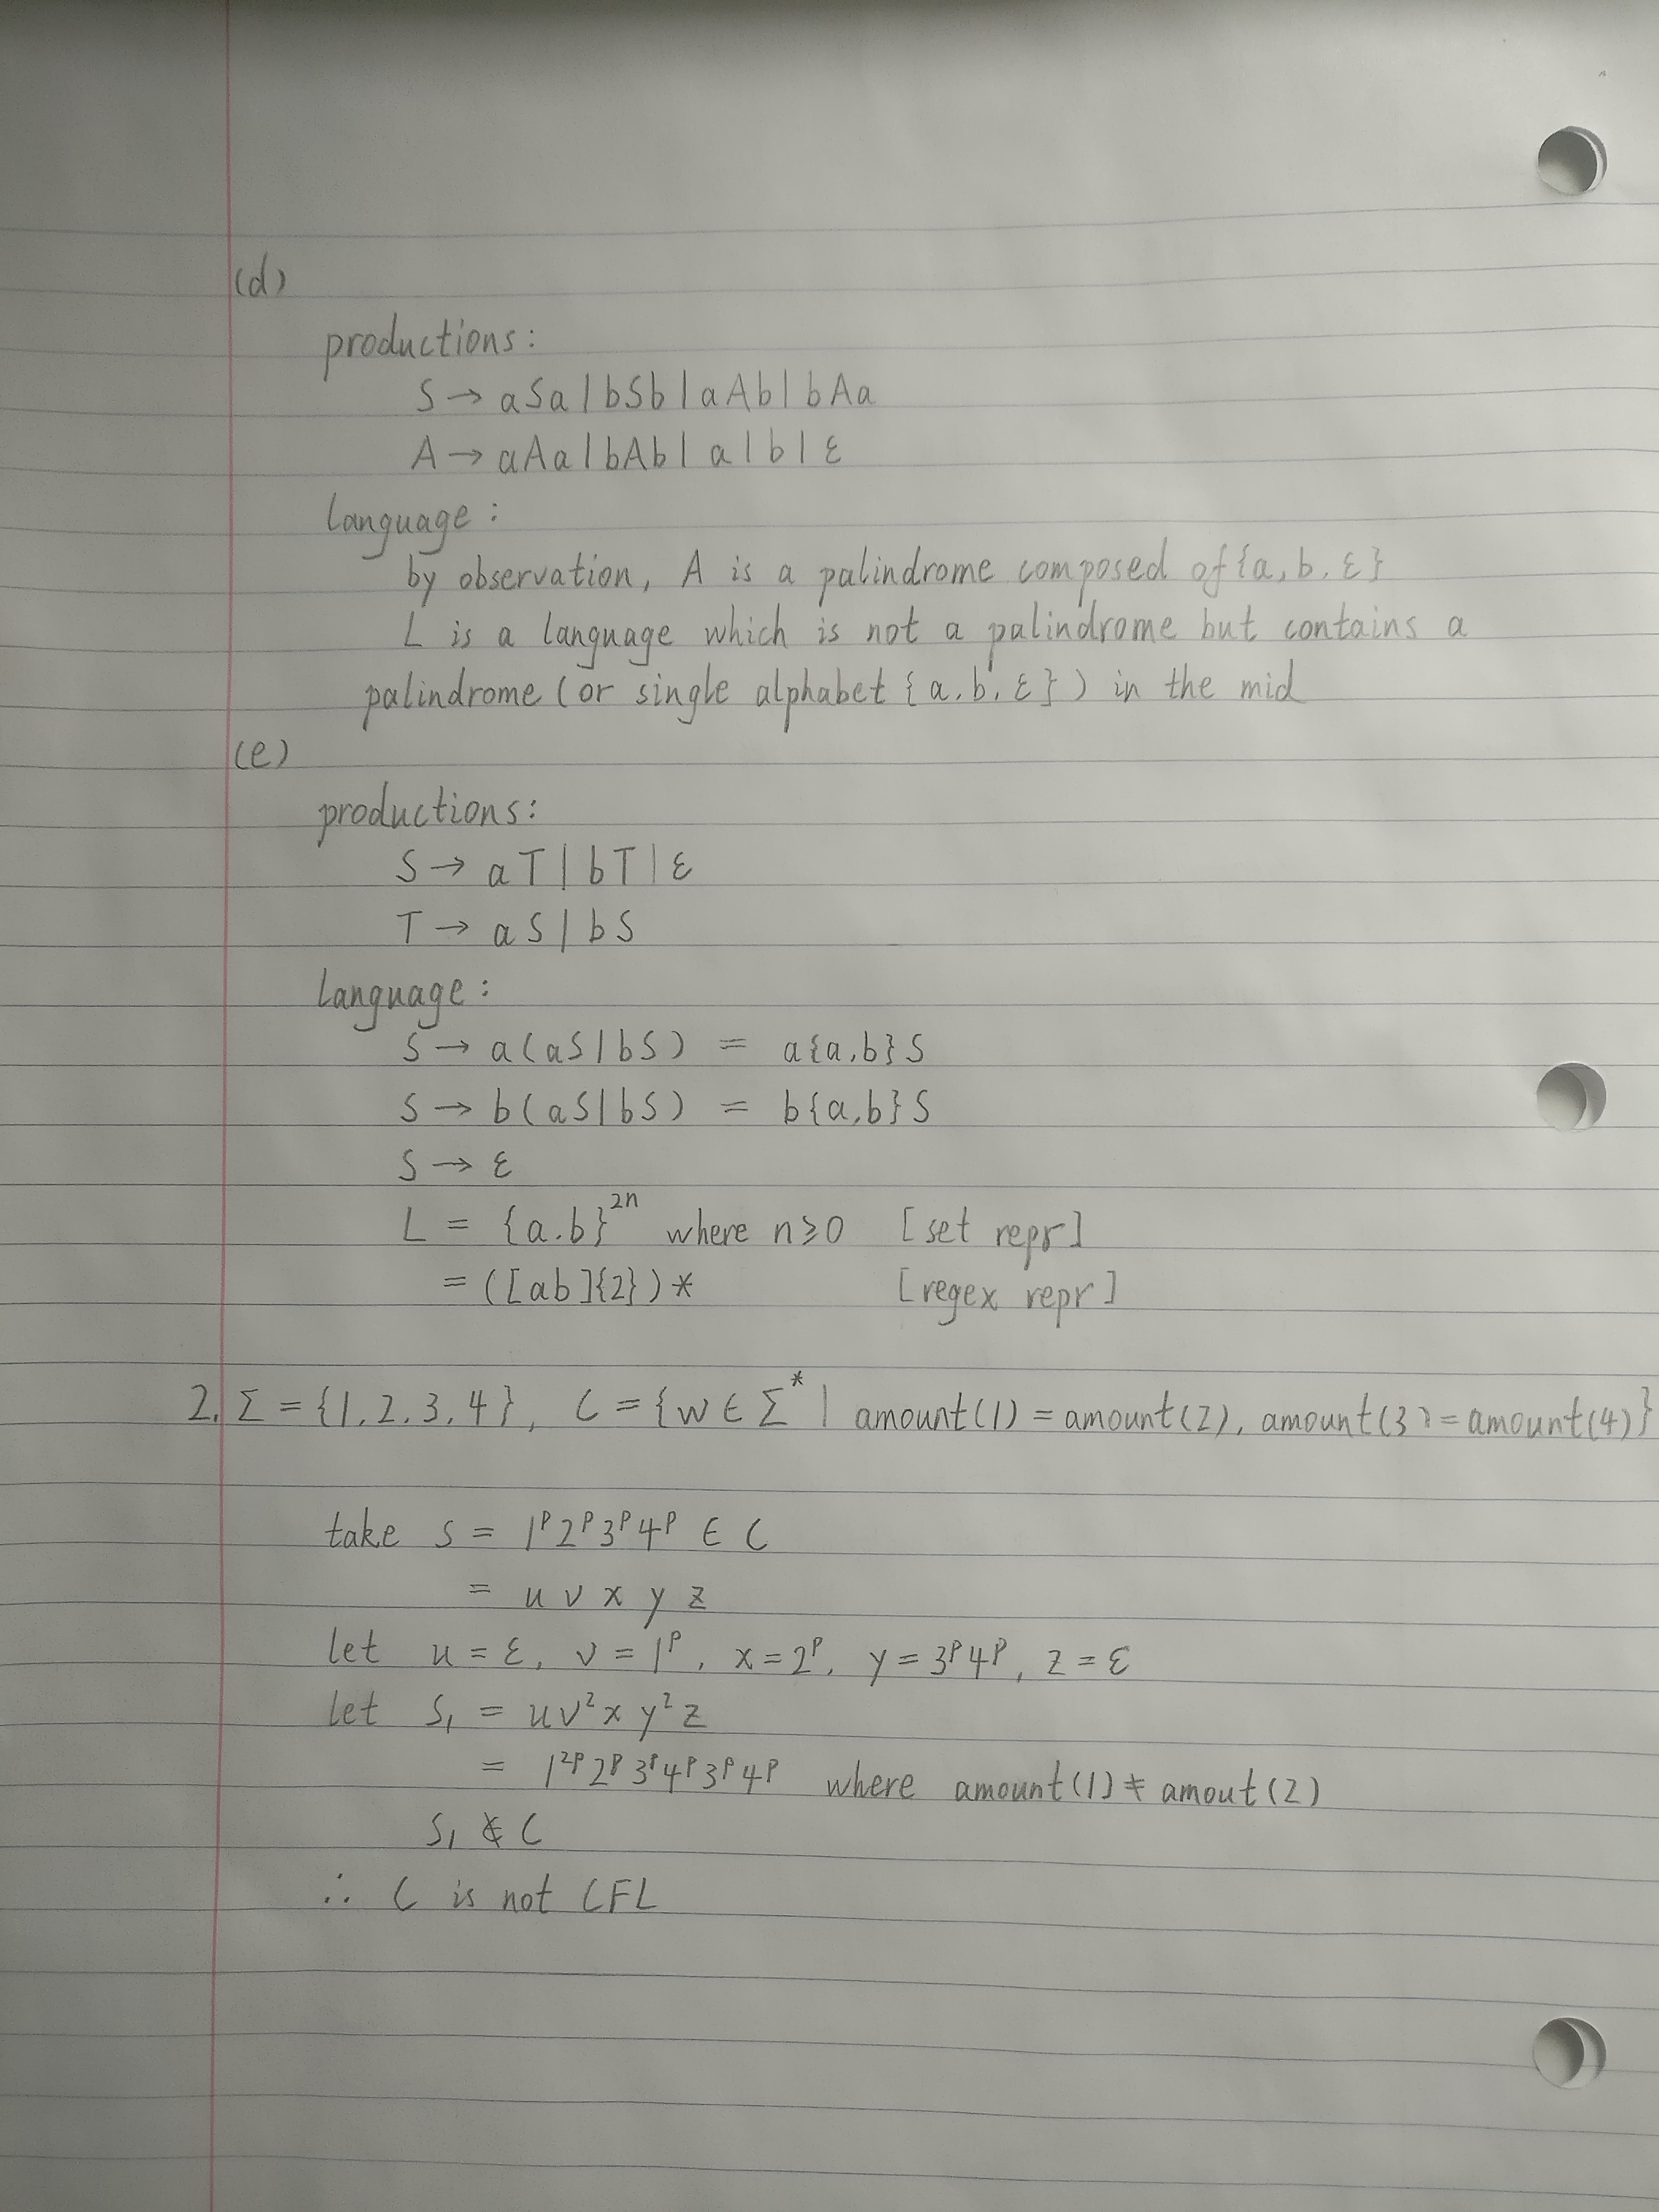 (d)
productions:
S → aSa | bSb | aAb | bAa
A → aAa | bAb | a | b | ε
language:
by observation, A is a palindrome composed of {a, b, ε}
L is a language which is not a palindrome but contains a
palindrome (or single alphabet {a, b, ε}) in the mid
(e)
productions:
S → aT | bT | ε
T → aS | bS
language:
S → a(aS | bS) = a{a,b}S
S → b(aS | bS) = b{a,b}S
S → ε
L = {a,b}²ⁿ where n≥0 [set repr]
= ([ab]{2})* [regex repr]
2. Σ = {1, 2, 3, 4}, C = {w ∈ Σ* | amount(1) = amount(2), amount(3) = amount(4)}
take s = 1ᵖ2ᵖ3ᵖ4ᵖ ∈ C
= u v x y z
let u = ε, v = 1ᵖ, x = 2ᵖ, y = 3ᵖ4ᵖ, z = ε
let s₁ = uv²xy²z
= 1²ᵖ2ᵖ3ᵖ4ᵖ3ᵖ4ᵖ where amount(1) ≠ amout(2)
s₁ ∉ C
∴ C is not CFL